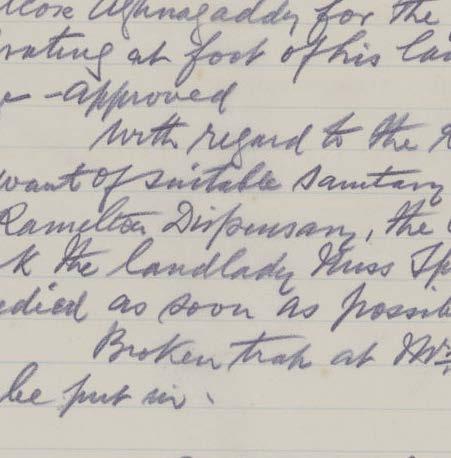 Aghnagaddy for the
rating at foot of his
- approved
With regard to the
want of suitable sanitary
Ramelton Dispensary, the
k the landlady Miss
edied as soon as possib
Broken trap at Mrs
be put in.